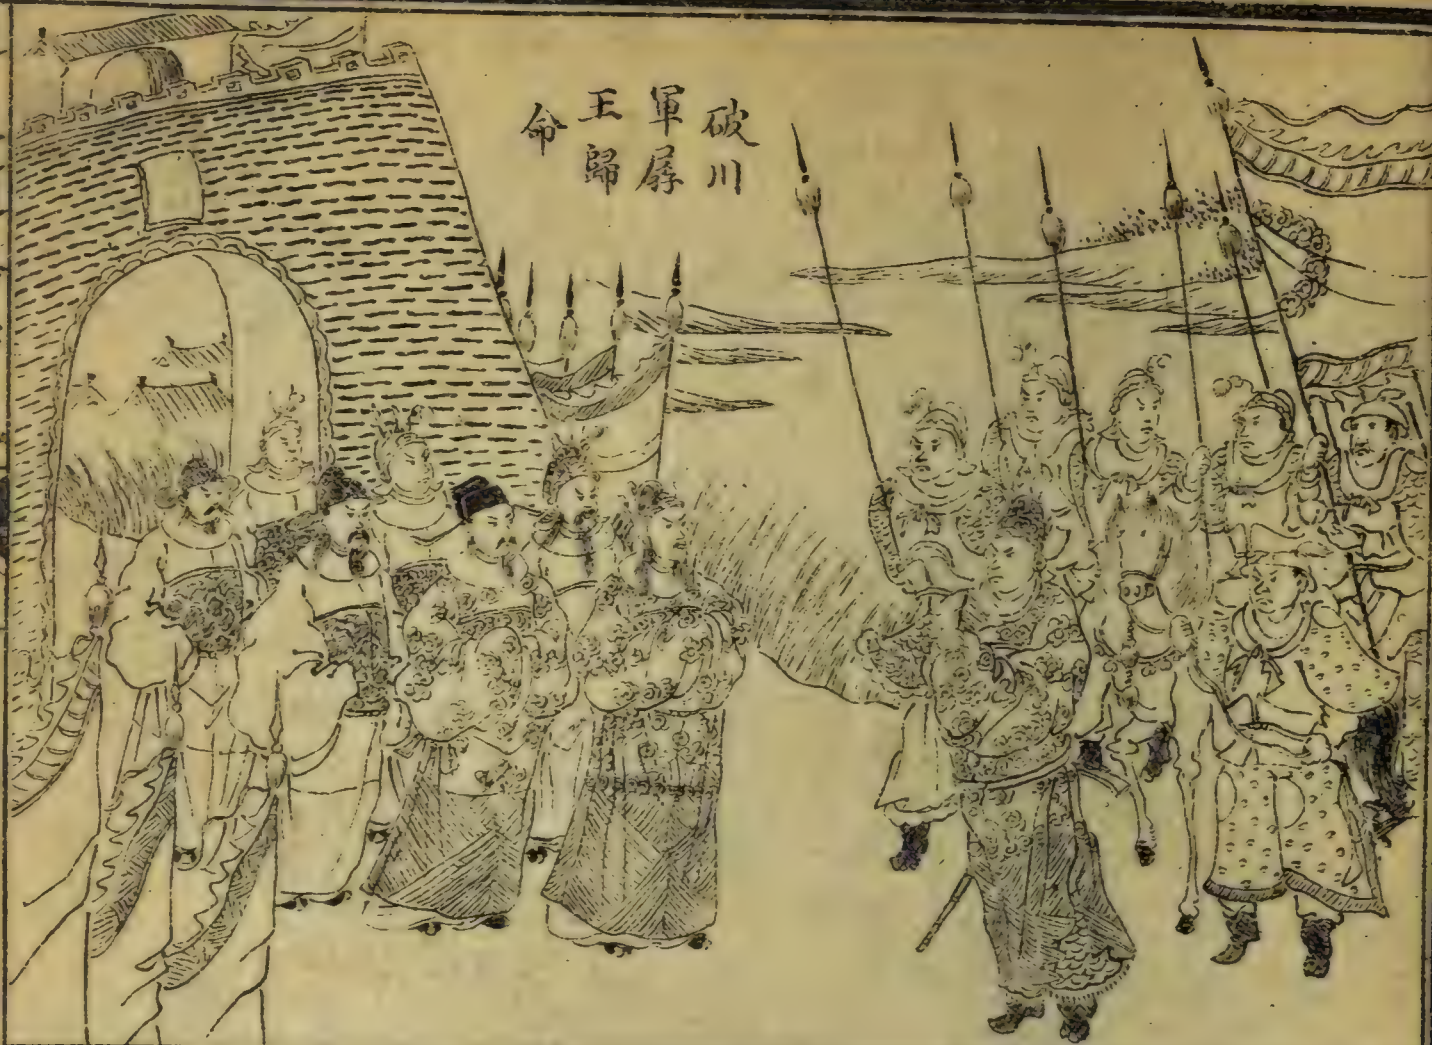 破川
軍孱
王歸
命